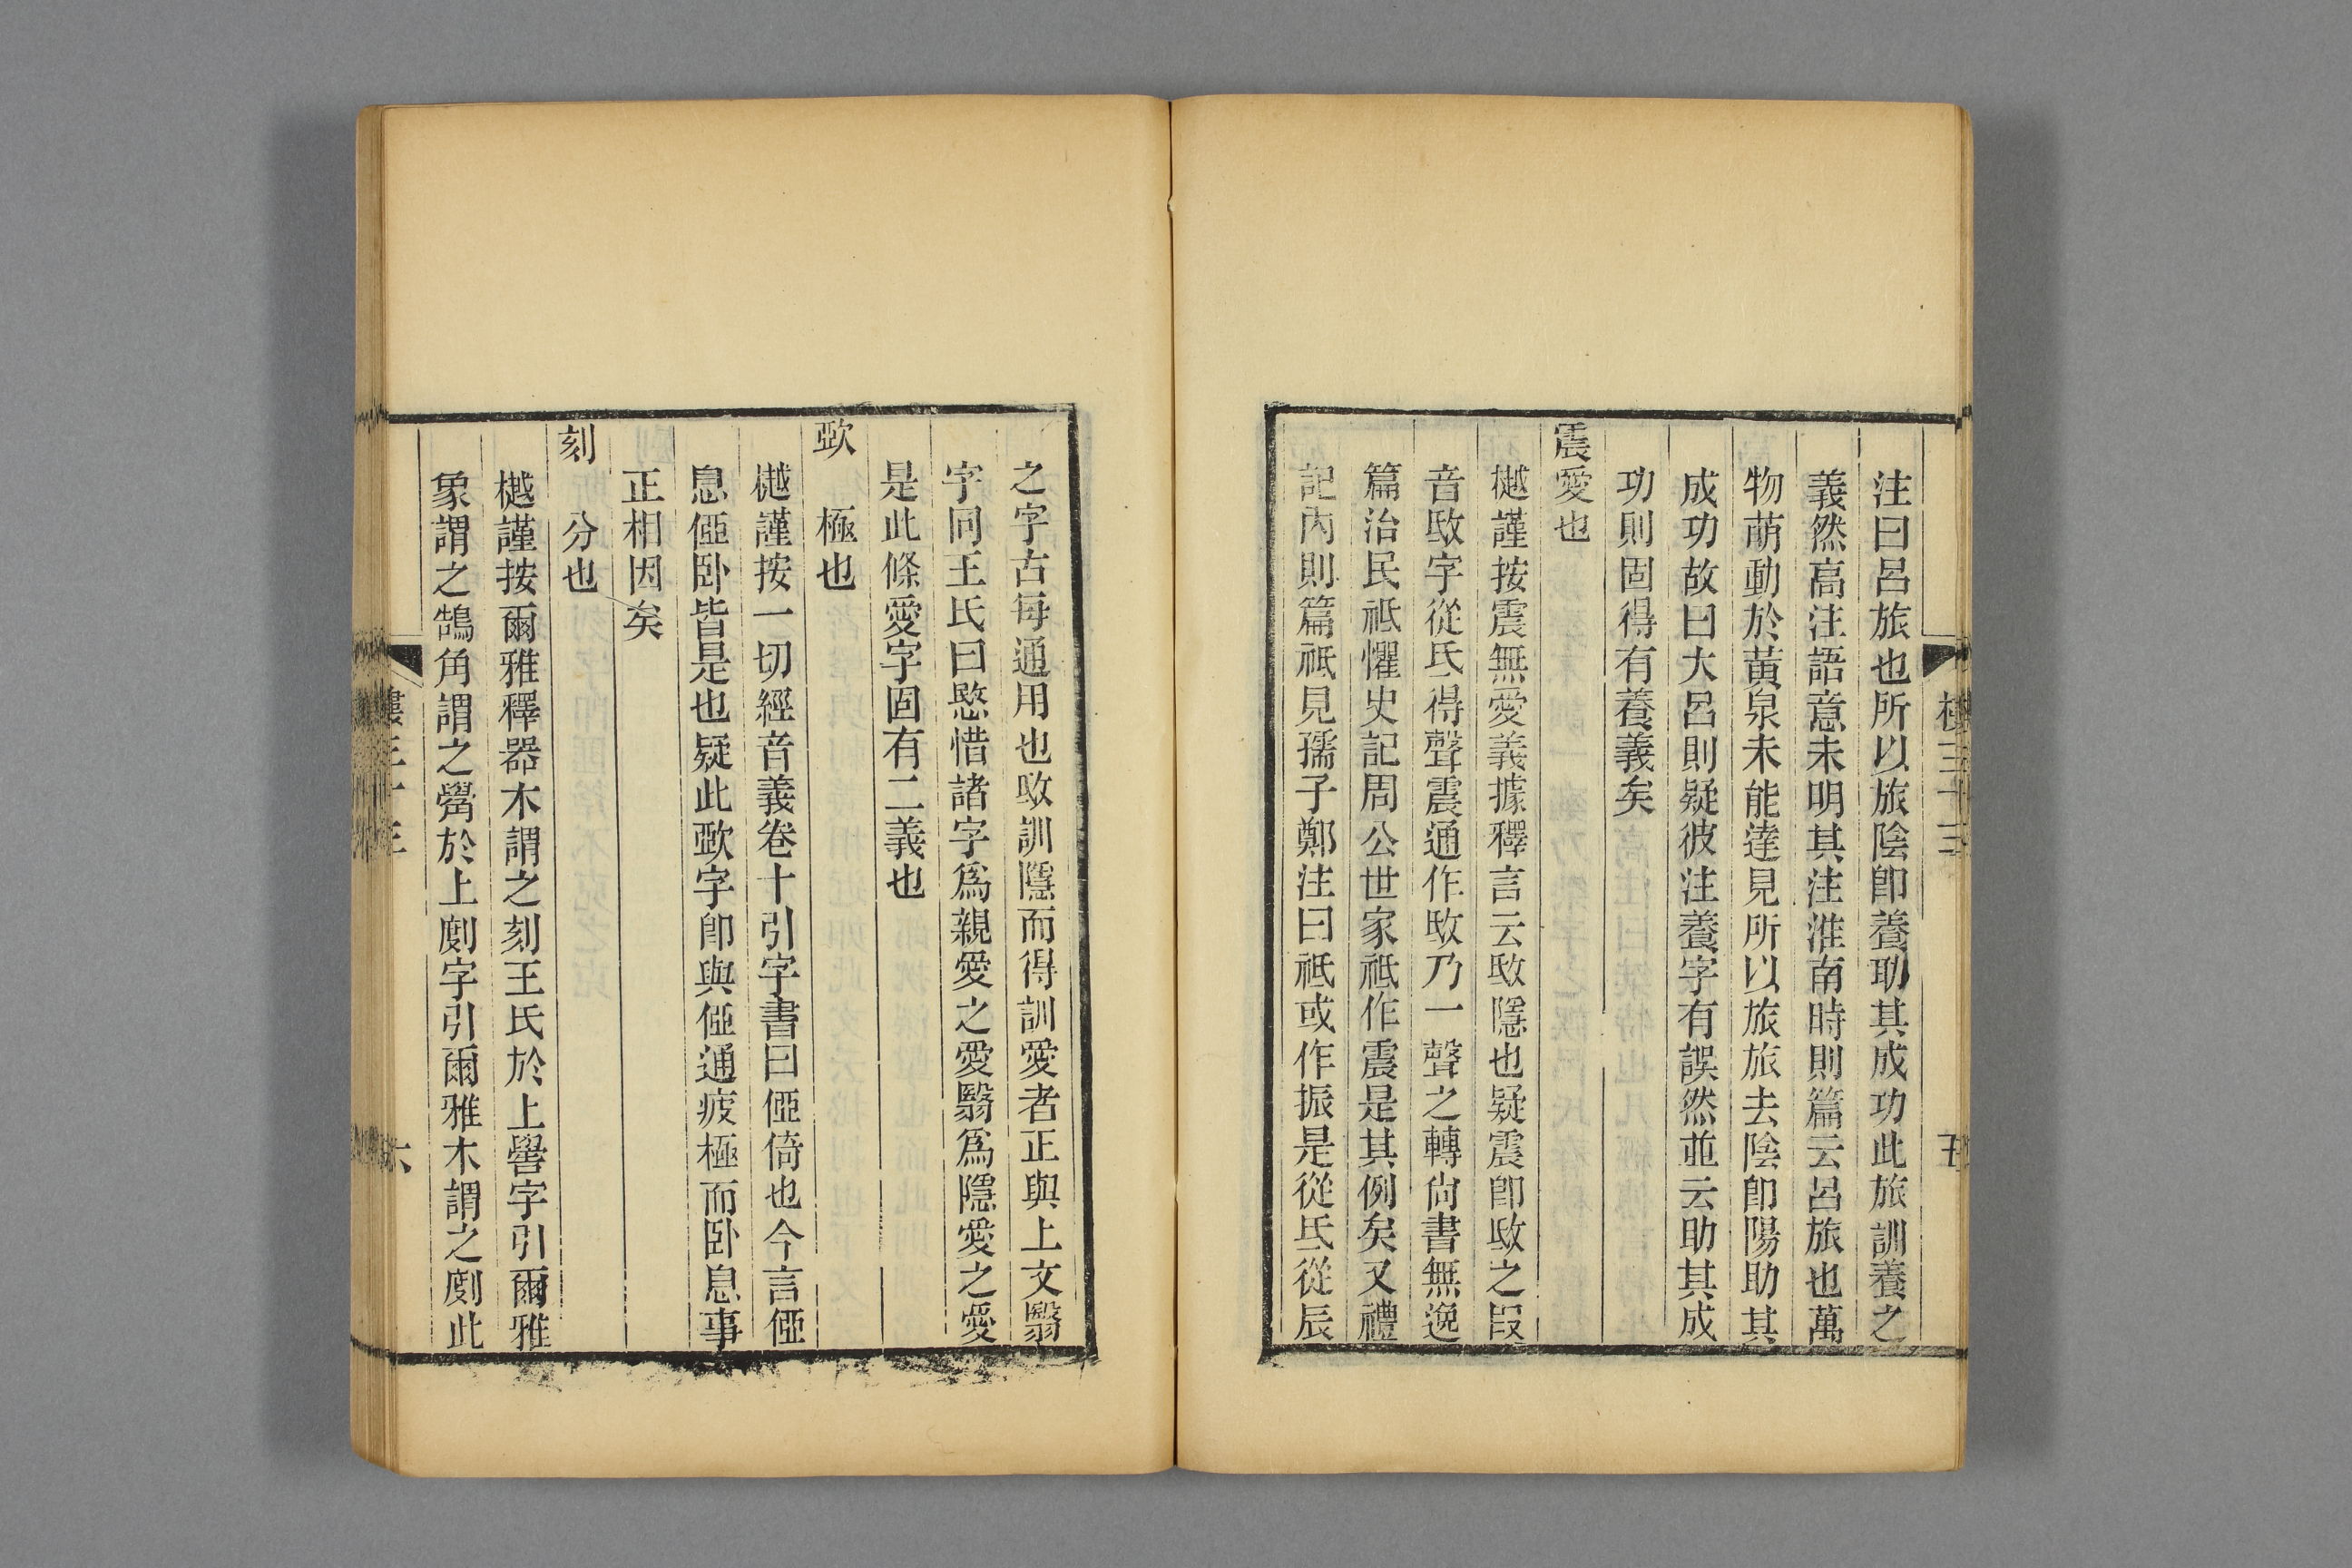 注曰呂旅也所以旅陰卽養助其成功此旅訓養之
義然高注語意未明其注淮南時則篇云呂旅也萬
物萌動於黄泉未能達見所以旅旅去陰卽陽助其
成功故曰大呂則疑彼注養字有誤然並云助其成
功則固得有養義矣
震愛也
樾謹按震無愛義據釋言云㪃隱也疑震卽㪃之叚
音㪃字從氐得聲震通作㪃乃一聲之轉尙書無逸
篇治民祗懼史記周公世家祗作震是其例矣又禮
記內則篇祗見孺子鄭注曰祗或作振是從氐從辰
之字古每通用也㪃訓隱而得訓愛者正與上文翳
字同王氏曰愍惜諸字爲親愛之愛翳爲隱愛之愛
是此條愛字固有二義也
㰳 極也
樾謹按一切經音義卷十引字書曰俹倚也今言俹
息俹卧皆是也疑此㰳字卽與俹通疲極而卧息事
正相因矣
刻 分也
樾謹按爾雅釋器木謂之刻王氏於上觷字引爾雅
象謂之鵠角謂之觷於上剫字引爾雅木謂之剫此
六